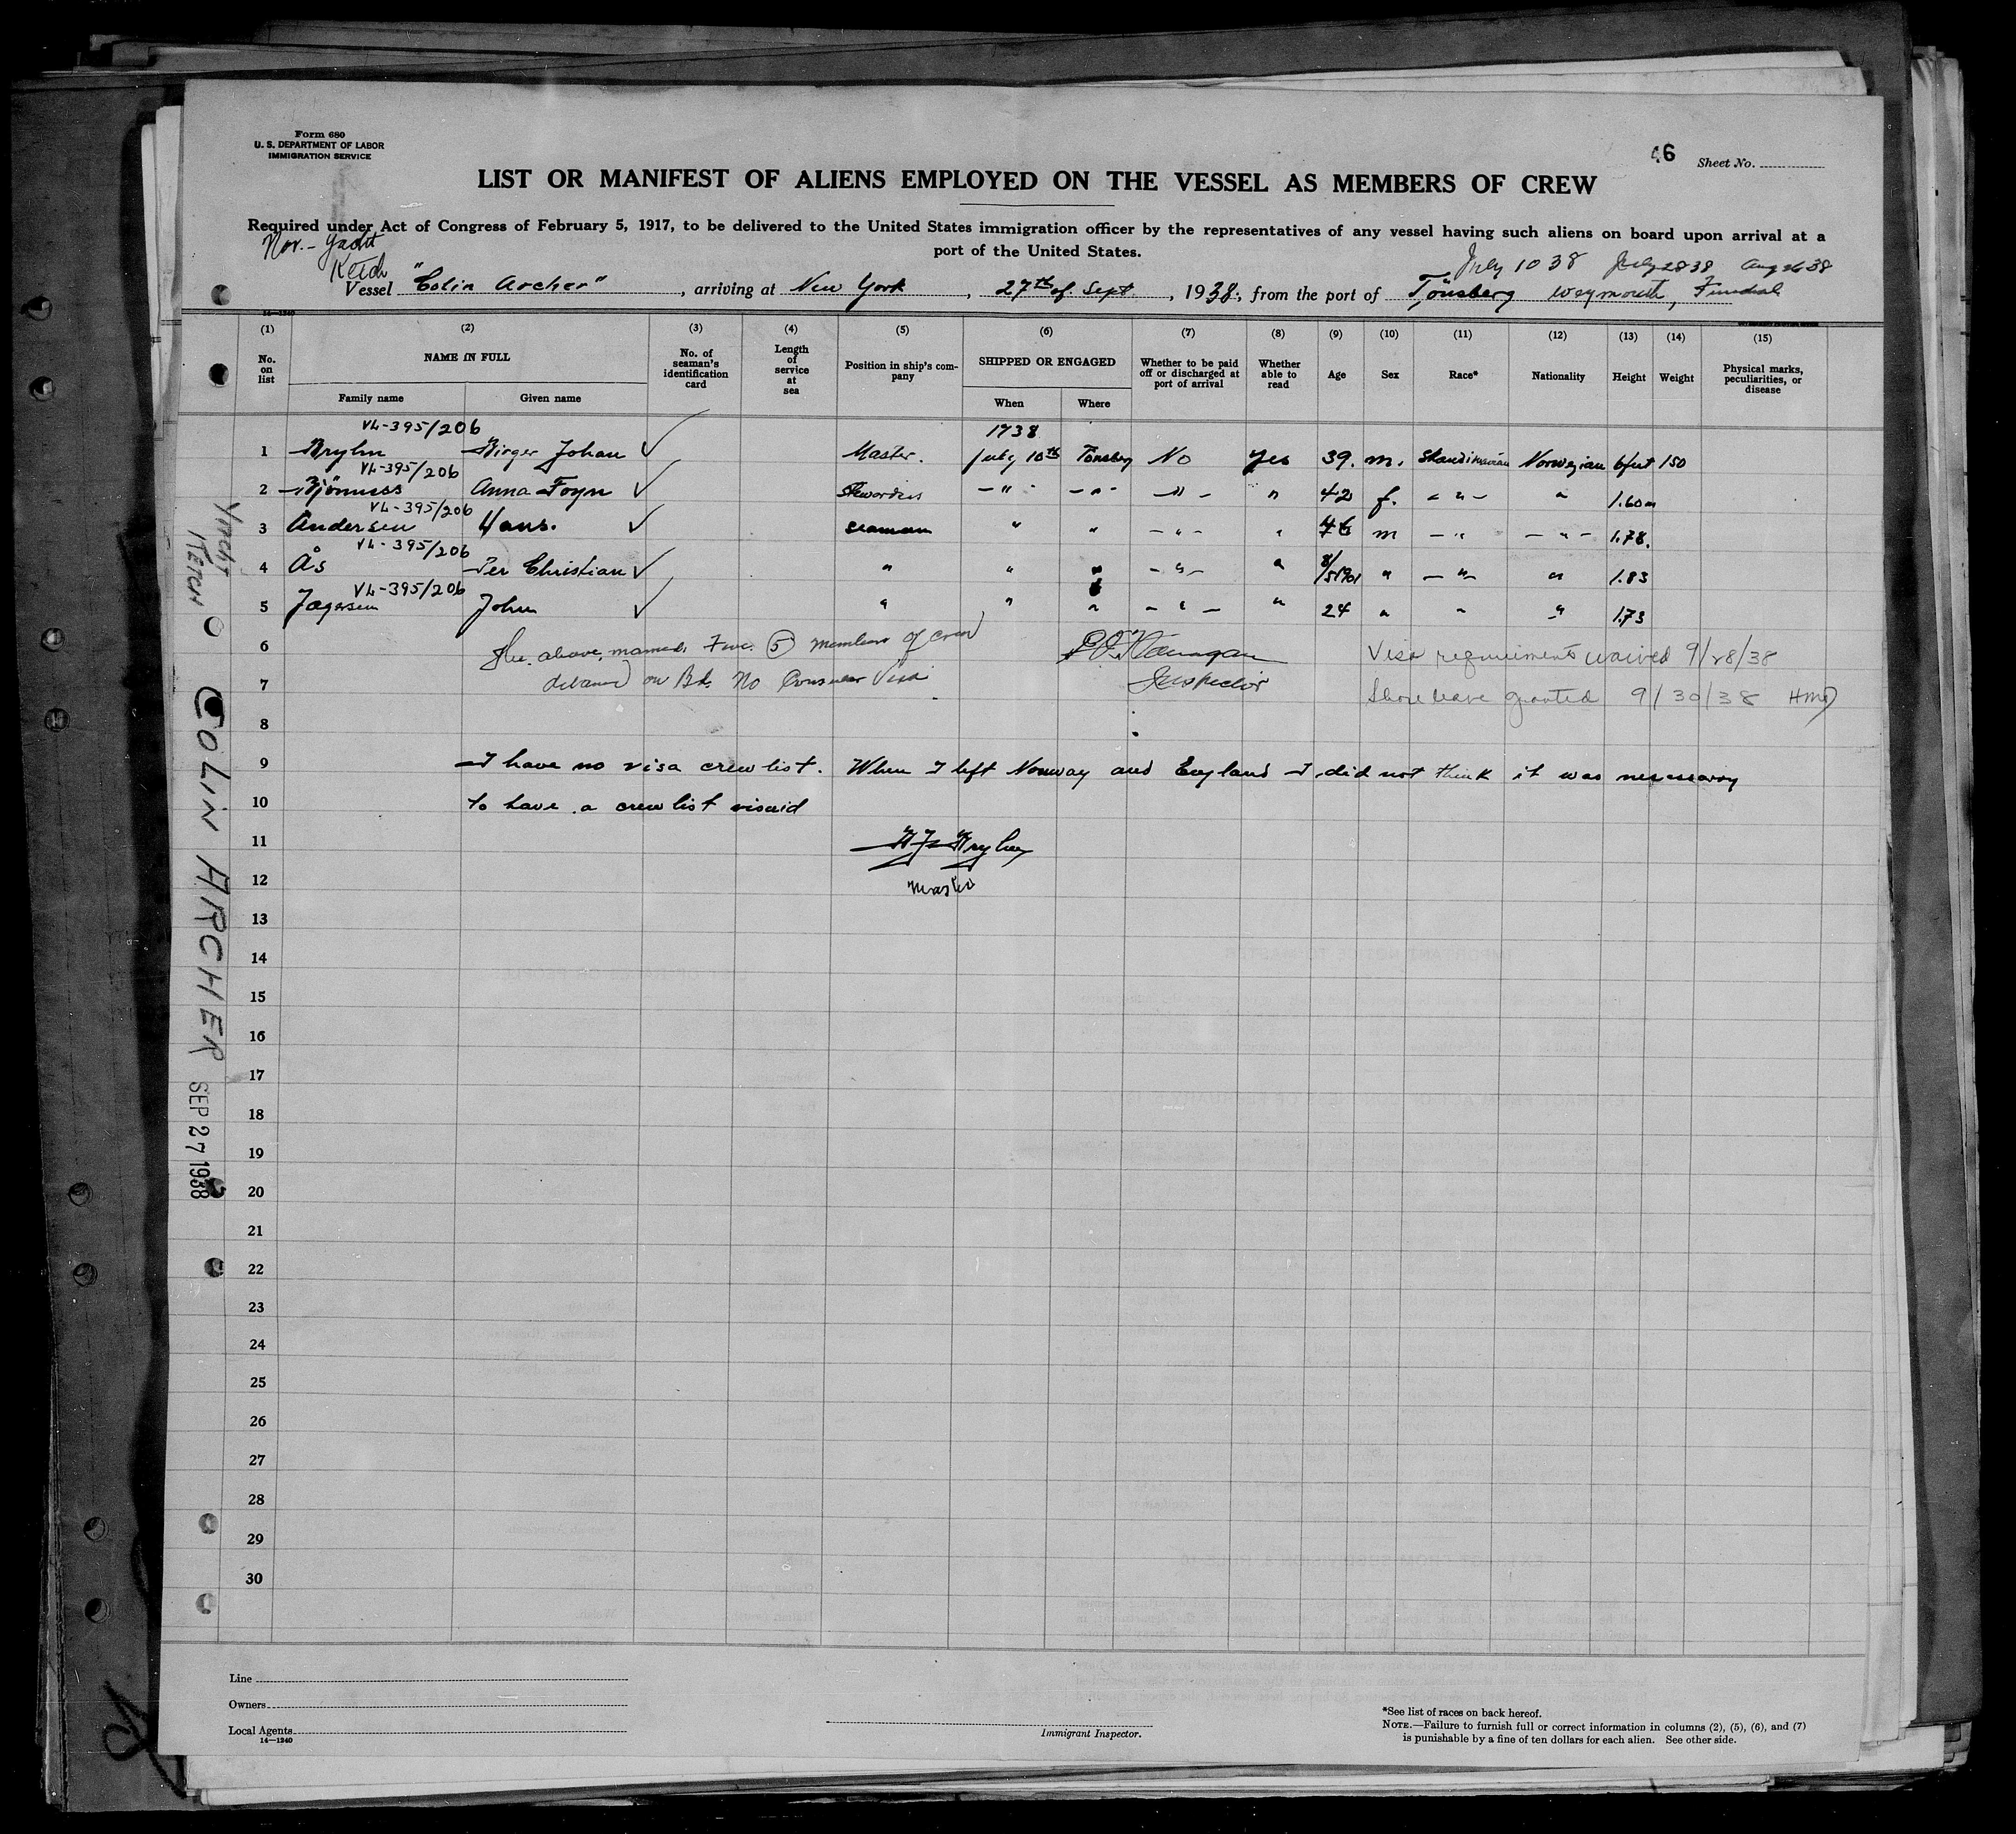 Form 680
U. S. DEPARTMENT OF LABOR
IMMIGRATION SERVICE
6 Sheet No.
LIST OR MANIFEST OF ALIENS EMPLOYED ON THE VESSEL AS MEMBERS OF CREW
Required under Act of Congress of February 5, 1917, to be delivered to the United States immigration officer by the representatives of any vessel having such aliens on board upon arrival at a
port of the United States.
Nor. - Yacht
Ketch
July 10 38 July 28 38 Aug 26 38
Vessel "Colin Archer", arriving at New York, 27th of Sept, 1938, from the port of Tönsberg Weymouth, Funchal
14—1240
(1) (2) (3) (4) (5) (6) (7) (8) (9) (10) (11) (12) (13) (14) (15)
No. on list NAME IN FULL No. of seaman's identification card Length of service at sea Position in ship's company SHIPPED OR ENGAGED Whether to be paid off or discharged at port of arrival Whether able to read Age Sex Race* Nationality Height Weight Physical marks, peculiarities, or disease
Family name Given name When Where
VL-395/206 1938
1 Bryhn Birger Johan ✓ Master. July 10th Tönsberg No Yes 39. m. Skandinavian Norwegian 6 feet 150
VL-395/206
2 Anna Foyn ✓ Stewardess - " - - " - - " - " 42 f. - " - " 1.60m
VL-395/206
3 Andersen Hans. ✓ seaman " " - " - " 46 m - " - " - 1.78.
VL-395/206
4 Ås Per Christian ✓ " " " - " - " " - " - " 1.83
VL-395/206
5 John ✓ " " " - " - " 24 " " " 1.73
6 The above named Five (5) members of crew Visa requirements waived 9/28/38
7 detained on Bd. No Consular Visa Inspector Shore leave granted 9/30/38
8
9 I have no visa crew list. When I left Norway and England I did not think it was necessary
10 to have a crew list visaid
11 B J Bryhn
12 Master
13
14
15
16
17
18
19
20
21
22
23
24
25
26
27
28
29
30
Yacht
KETCH
COLIN ARCHER SEP 27 1938
Line
Owners
Local Agents
14—1240
Immigrant Inspector.
*See list of races on back hereof.
NOTE.—Failure to furnish full or correct information in columns (2), (5), (6), and (7)
is punishable by a fine of ten dollars for each alien. See other side.